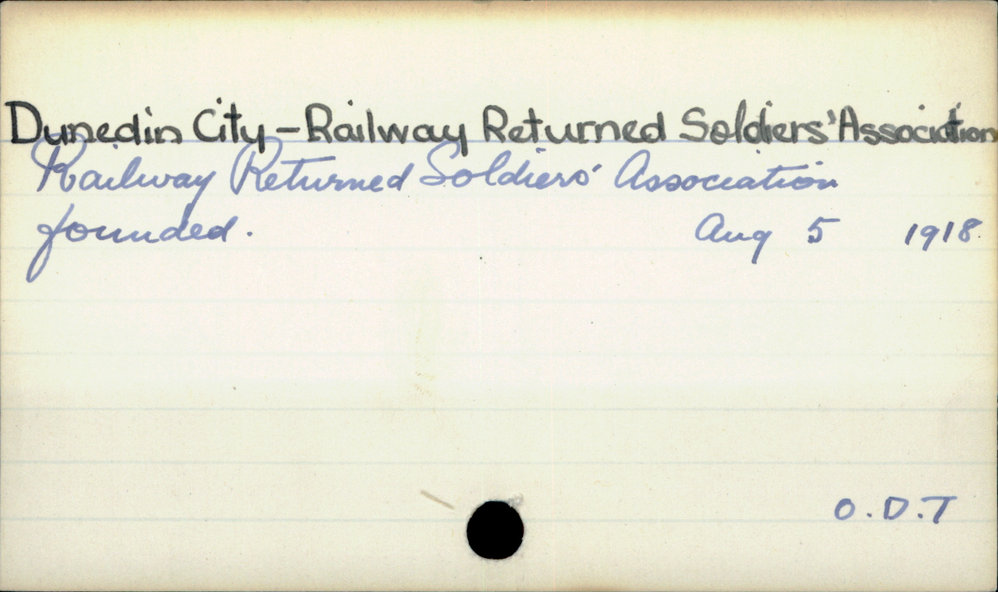 Dunedin City - Railway Returned Soldiers' Association
Railway Returned Soldiers' Association
founded. Aug 5 1918.
O.D.T